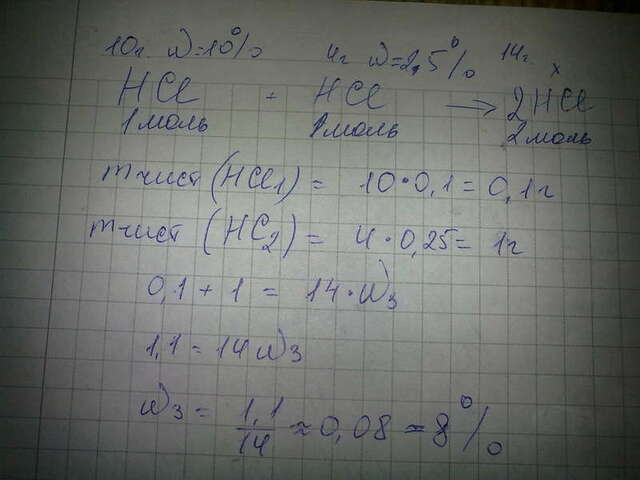 10г ω=10% 4г ω=2,5% 14г x
HCl + HCl → 2HCl
1моль 1моль 2моль
m чист (HCl1) = 10·0,1=0,1г
m чист (HC2) = 4·0,25= 1г
0,1+1 = 14·ω3
1,1=14ω3
ω3 = 1,1/14 ≈0,08=8%